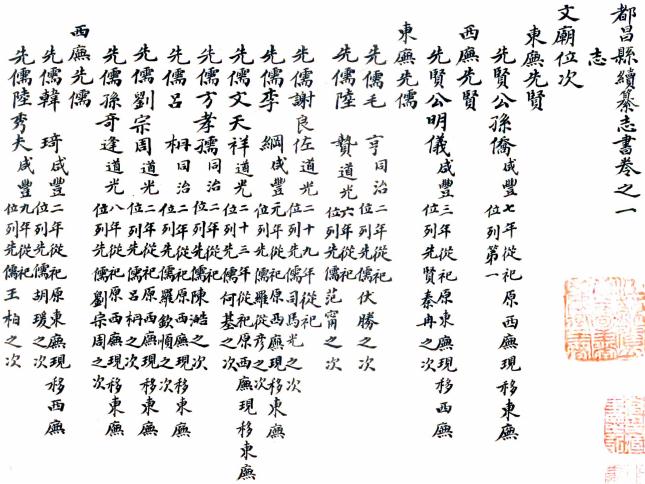 都昌縣續纂志書卷之一
志
文廟位次
東廡先賢
先賢公孫僑咸豐七年從祀原西廡現移東廡
位列第一
西廡先賢
先賢公明儀咸豐三年從祀原東廡現移西廡
位列先賢秦冉之次
東廡先儒
先儒毛 亨同治二年從祀
位列先儒伏勝之次
先儒陸 贄道光六年從祀
位列先儒范甯之次
先儒謝良佐道光二十九年從祀
位列先儒司馬光之次
先儒李 綱咸豐元年從祀原西廡現移東廡
位列先儒羅從彥之次
先儒文天祥道光二十三年從祀原西廡現移東廡
位列先儒何基之次
先儒方孝孺同治二年從祀
位列先儒陳澔之次
先儒呂 柟同治二年從祀原西廡現移東廡
位列先儒羅欽順之次
先儒劉宗周道光二年從祀原西廡現移東廡
位列先儒呂柟之次
先儒孫奇逢道光八年從祀原西廡現移東廡
位列先儒劉宗周之次
西廡先儒
先儒韓 琦咸豐二年從祀原東廡現移西廡
位列先儒胡瑗之次
先儒陸秀夫咸豐九年從祀
位列先儒王柏之次